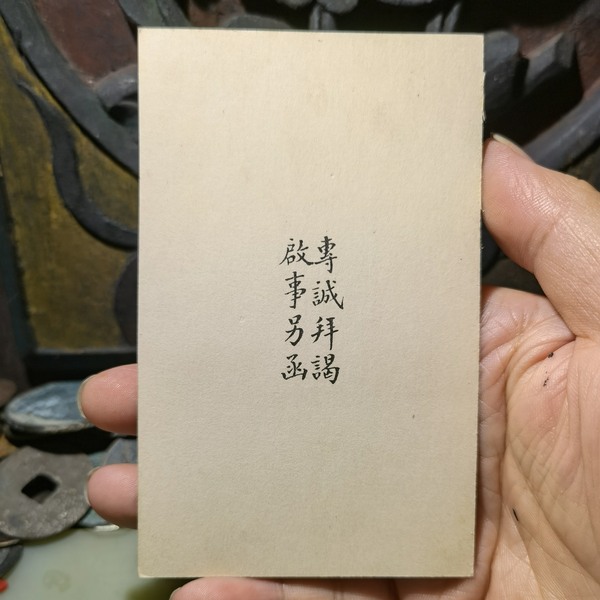 專誠拜謁
啟事另函